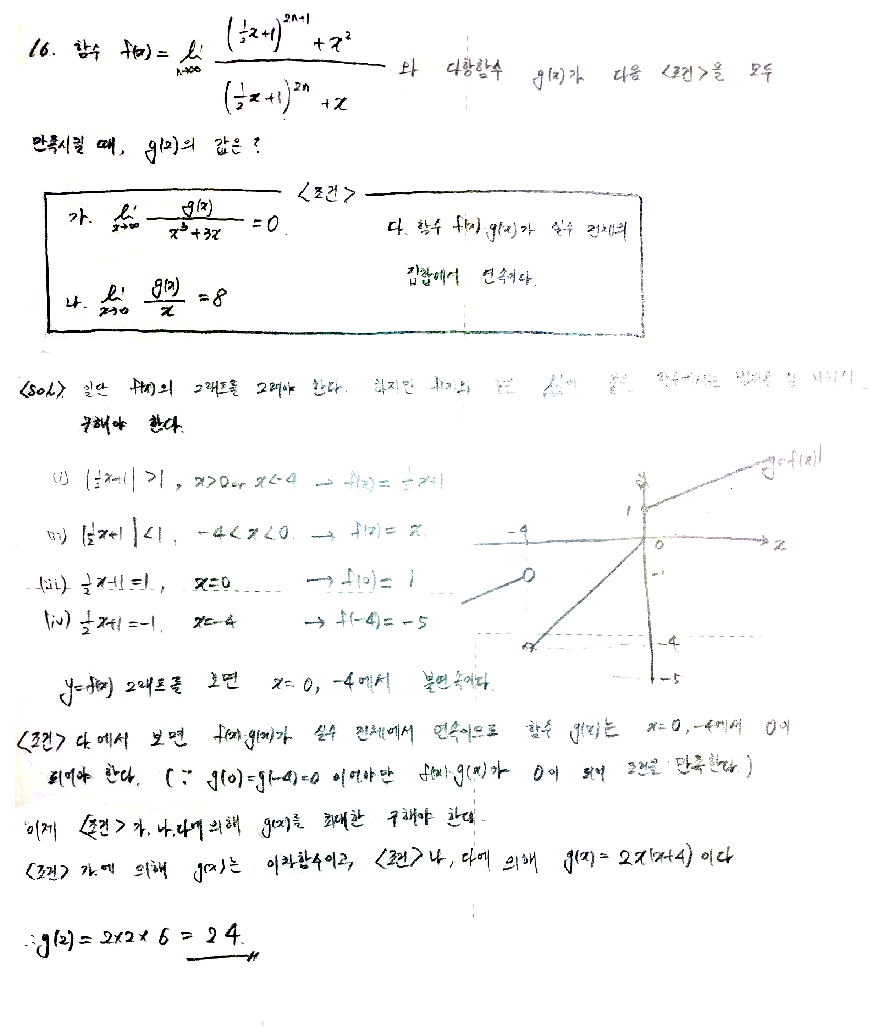 16. 함수 f(x) = lim n→∞ ((½x+1)^{2n+1} + x²) / ((½x+1)^{2n} + x) 와 다항함수 g(x)가 다음 <조건>을 모두
만족시킬 때, g(2)의 값은?
<조건>
가. lim x→∞ g(x) / (x³+3x) = 0.
나. lim x→0 g(x) / x = 8
다. 함수 f(x)·g(x)가 실수 전체의
집합에서 연속이다.
<Sol> 일단 f(x)의 그래프를 그려야 한다. 하지만
구해야 한다.
(i) |½x+1| >1, x>0 or x<-4 → f(x) = ½x+1
(ii) |½x+1| <1, -4<x<0. → f(x) = x.
(iii) ½x+1 = 1, x=0 → f(0) = 1
(iv) ½x+1 = -1. x=-4 → f(-4) = -5
y y=f(x)
1
-4 0 x
-1
-4
-5
y=f(x) 그래프를 보면 x=0, -4에서 불연속이다.
<조건> 다.에서 보면 f(x)·g(x)가 실수 전체에서 연속이므로 함수 g(x)는 x=0, -4에서 0이
되어야 한다. (∵ g(0)=g(-4)=0 이어야만 f(x)·g(x)가 0이 되어 조건을 만족한다.)
이제 <조건> 가, 나, 다에 의해 g(x)를 최대한 구해야 한다.
<조건> 가.에 의해 g(x)는 이차함수이고, <조건> 나, 다에 의해 g(x) = 2x(x+4) 이다
∴ g(2) = 2×2×6 = 24.